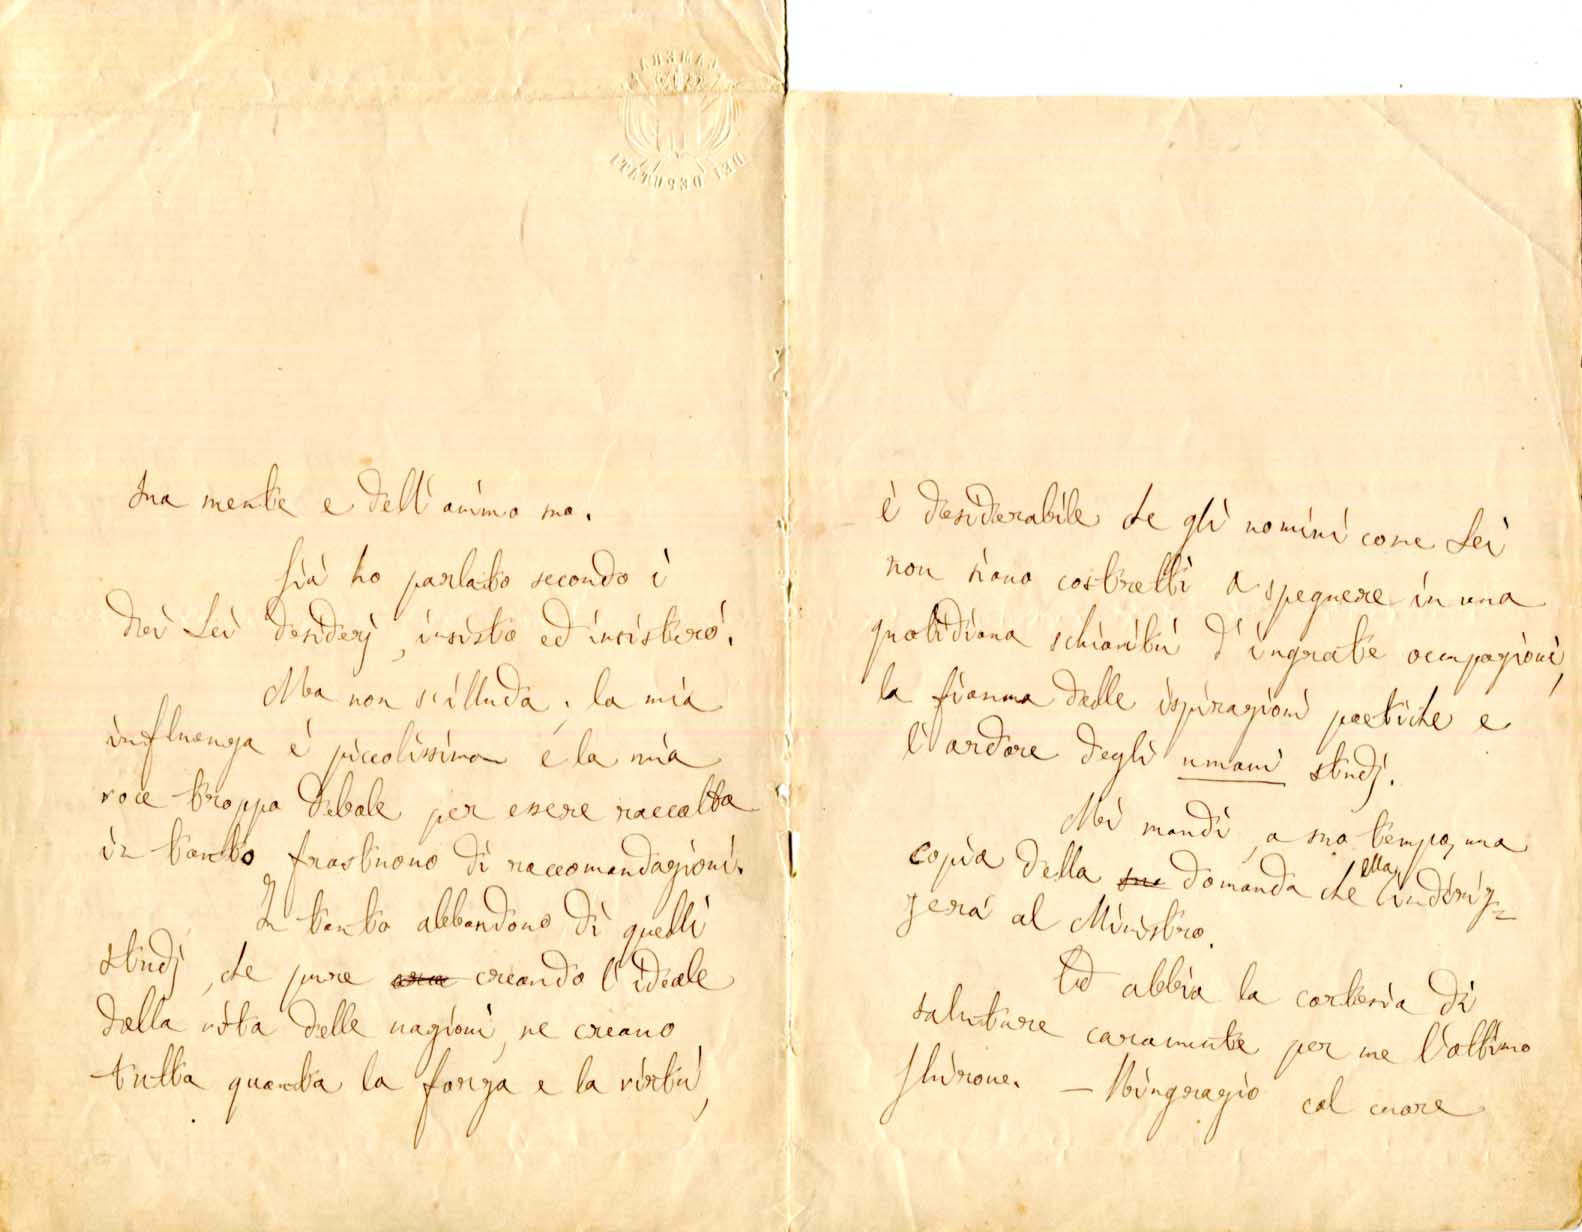 CAMERA
DEI DEPUTATI
sua mente e dell'animo suo.
Già ho parlato secondo i
dei Lei desiderj, insisto ed insisterò.
Ma non s'illuda; la mia
influenza è piccolissima e la mia
voce troppo debole per essere raccolta
in tanto frastuono di raccomandazioni.
In tanto abbandono di quelli
studj, che pure creando l'ideale
della vita delle nazioni, ne creano
tutta quanta la forza e la virtù,
è desiderabile che gli uomini come Lei
non siano costretti a spegnere in una
quotidiana schiavitù d'ingrate occupazioni,
la fiamma delle ispirazioni poetiche e
l'ardore degli umani studj.
Mi mandi, a suo tempo, una
copia della sua domanda che ella indiriz=
zerà al Ministro.
Ed abbia la cortesia di
salutare caramente per me l'ottimo
Ghirone. — Ringrazio col cuore